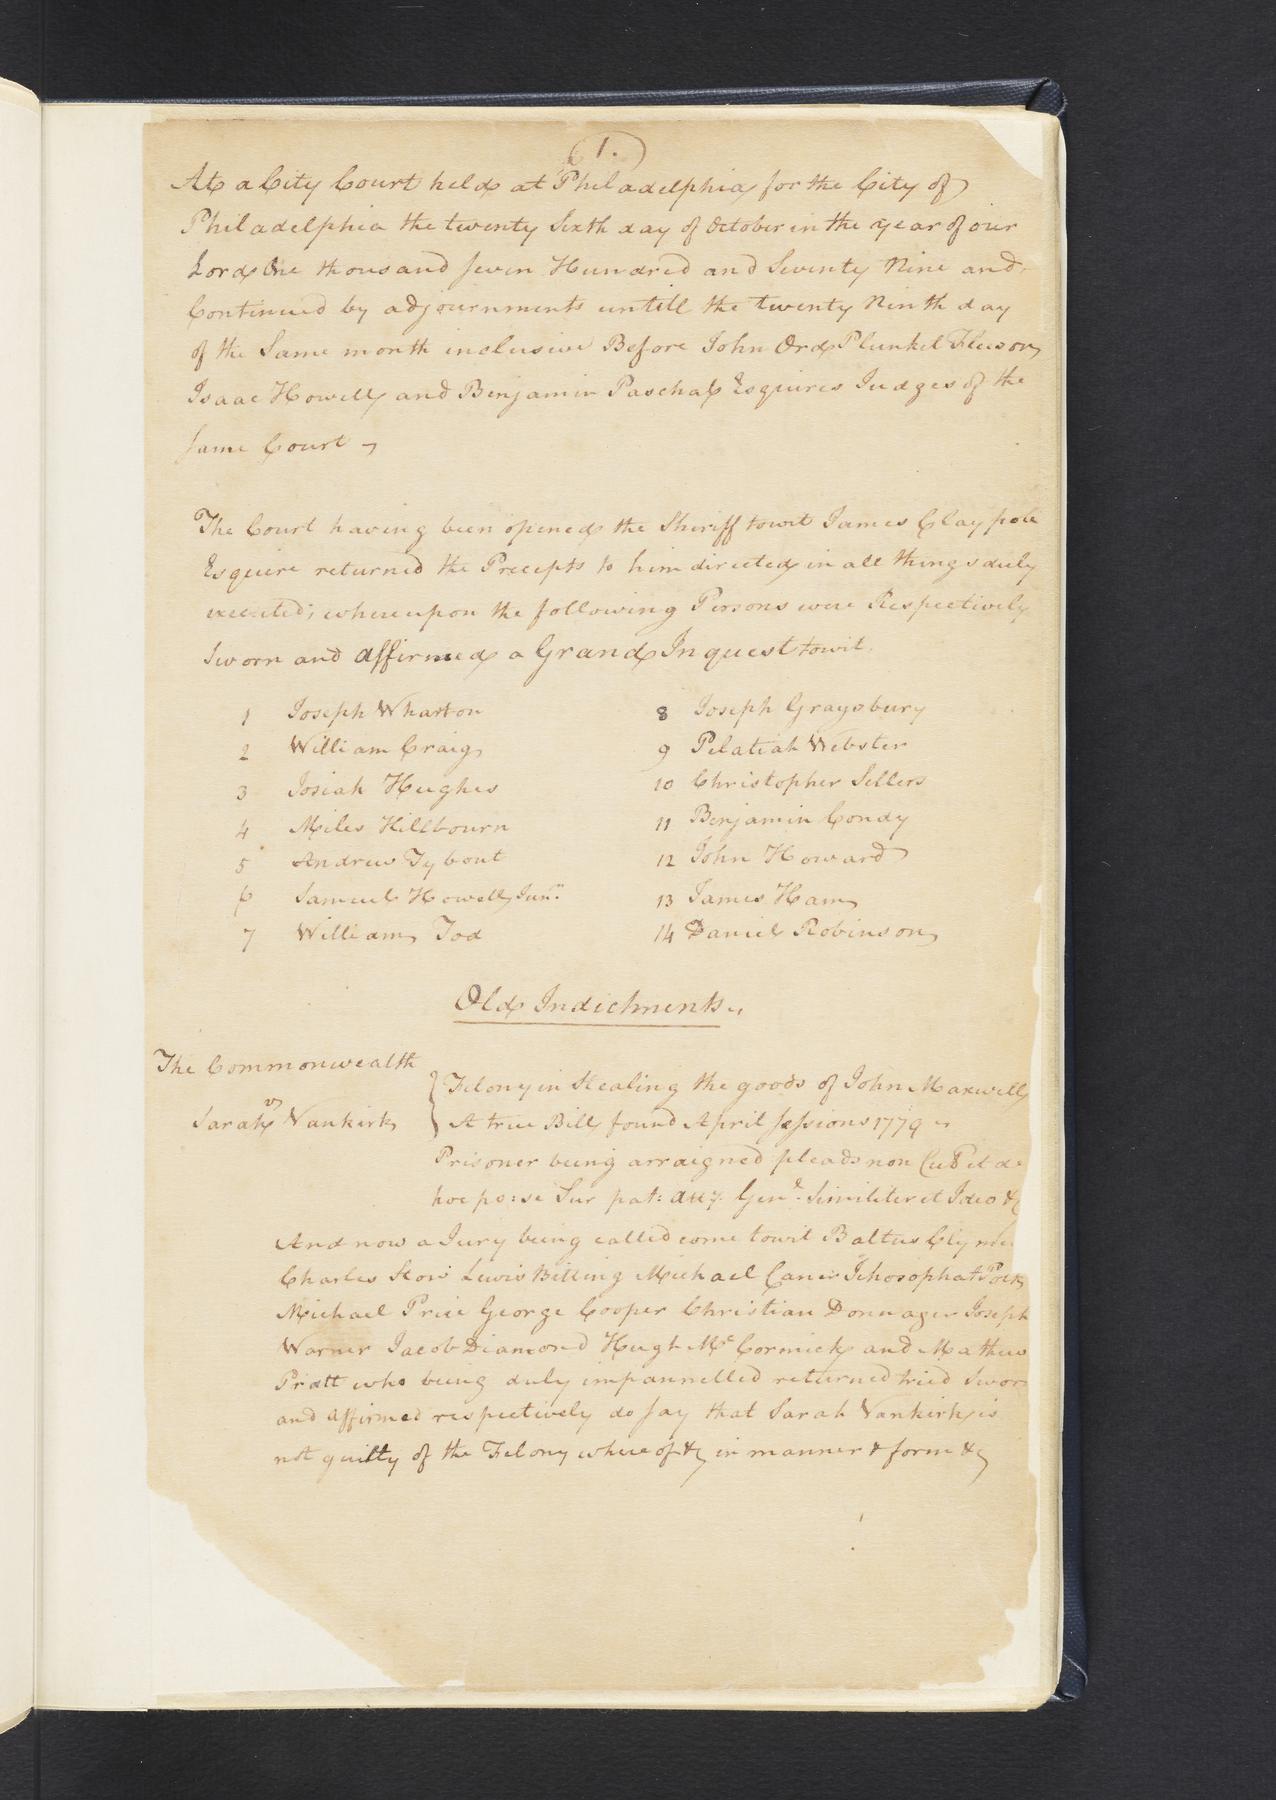 (1.)
At a City Court held at Philadelphia for the City of
Philadelphia the twenty Sixth day of October in the year of our
Lord One thousand seven Hundred and Seventy Nine and
Continued by adjournments untill the twenty Ninth day
of the Same month inclusive Before John Ord Plunket Fleeson
Isaac Howell and Benjamin Paschal Esquires Judges of the
same Court
The Court having been opened the Sheriff towit James Claypole
Esquire returned the Precepts to him directed in all things duly
executed; whereupon the following Persons were Respectively
Sworn and affirmed a Grand Inquest towit.
1 Joseph Wharton
2 William Craig
3 Josiah Hughes
4 Miles Hillbourn
5 Andrew Tybout
6 Samuel Howell Junr.
7 William Tod
8 Joseph Graysbury
9 Pelatiah Webster
10 Christopher Sellers
11 Benjamin Condy
12 John Howard
13 James Ham
14 Daniel Robinson
Old Indictments
The Commonwealth
vs
Sarah Vankirk
Felony in Stealing the goods of John Maxwell
A true Bill found April sessions 1779
Prisoner being arraigned pleads non Cul et de
hoc po: se Sur pat: Atty. Genl. Similiter et Ideo &c
And now a Jury being called come towit Baltus Clymer
Charles Stow Lewis Bitting Michael Caner Jehosophat Polk
Michael Price George Cooper Christian Donnager Joseph
Warner Jacob Diamond Hugh McCormick and Mathew
Pratt who being duly impannelled returned tried Sworn
and affirmed respectively do say that Sarah Vankirk is
not guilty of the Felony whereof &c in manner & form &c